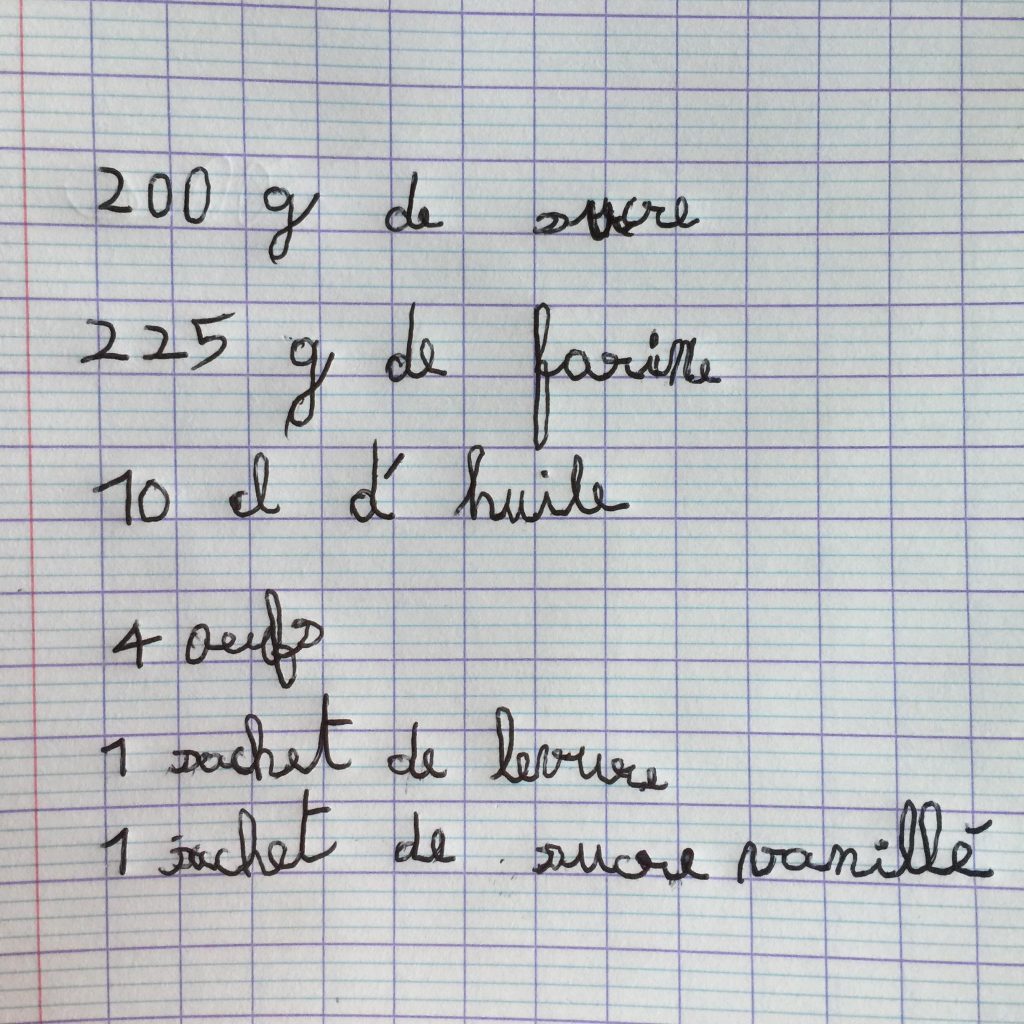 200 g de sucre
225 g de farine
10 cl d'huile
4 oeufs
1 sachet de levure
1 sachet de sucre vanillé